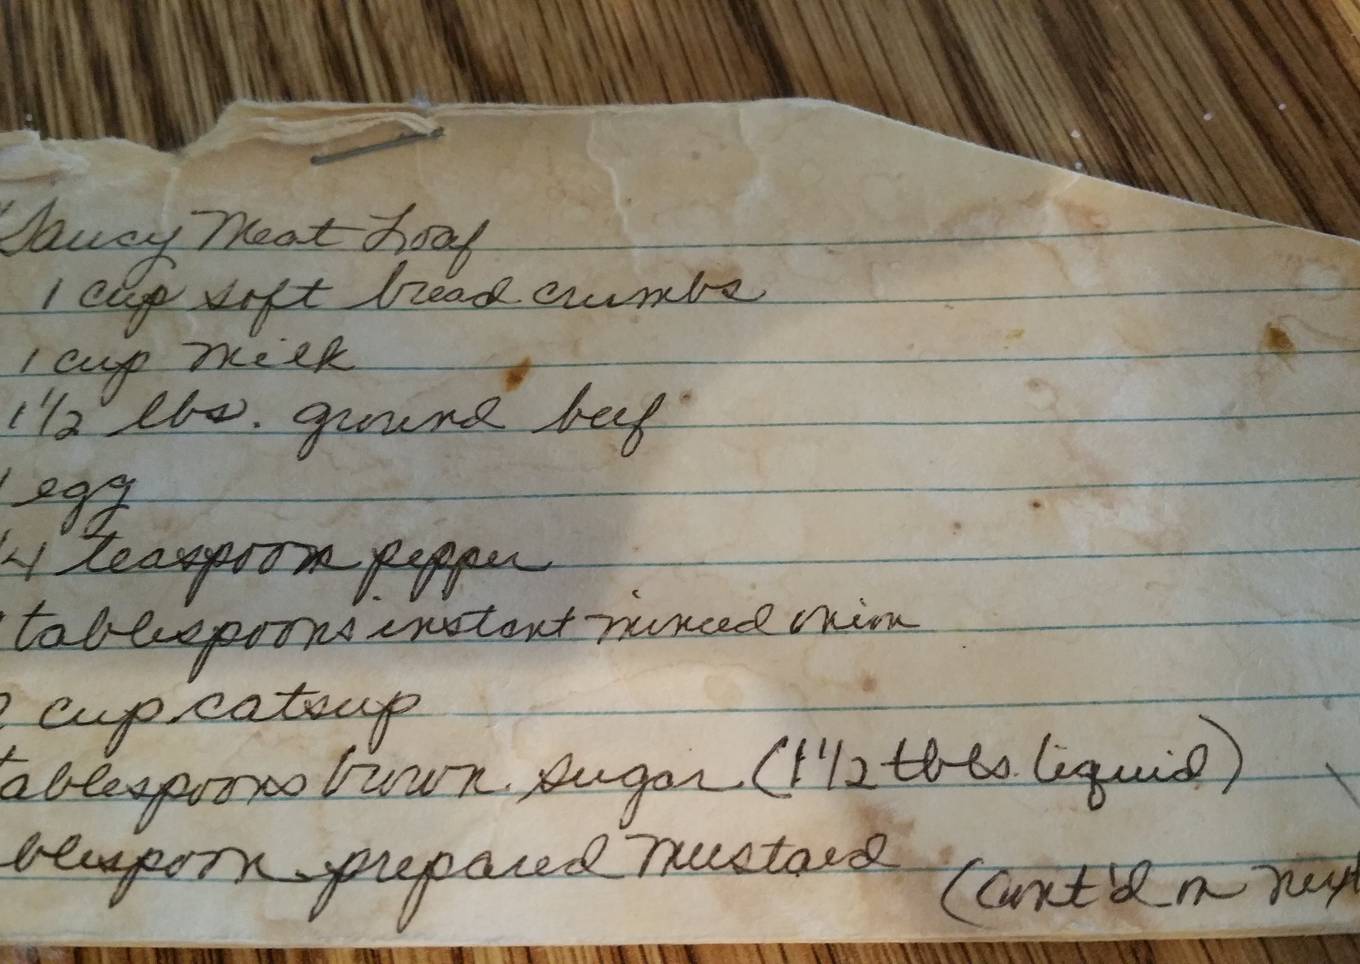 "Saucy Meat Loaf
1 cup soft bread crumbs
1 cup milk
1 1/2 lbs. ground beef
1 egg
1/4 teaspoon pepper
tablespoons instant minced onion
2 cup catsup
tablespoons brown sugar (1 1/2 tbls. liquid)
blespoon prepared mustard
(cont'd on next